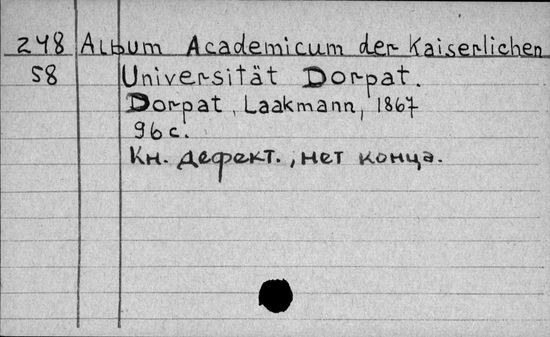 248 Album Academicum der Kaiserlichen
58 Universität Dorpat.
Dorpat, Laakmann, 1867
96 с.
Кн. дефект., нет конца.